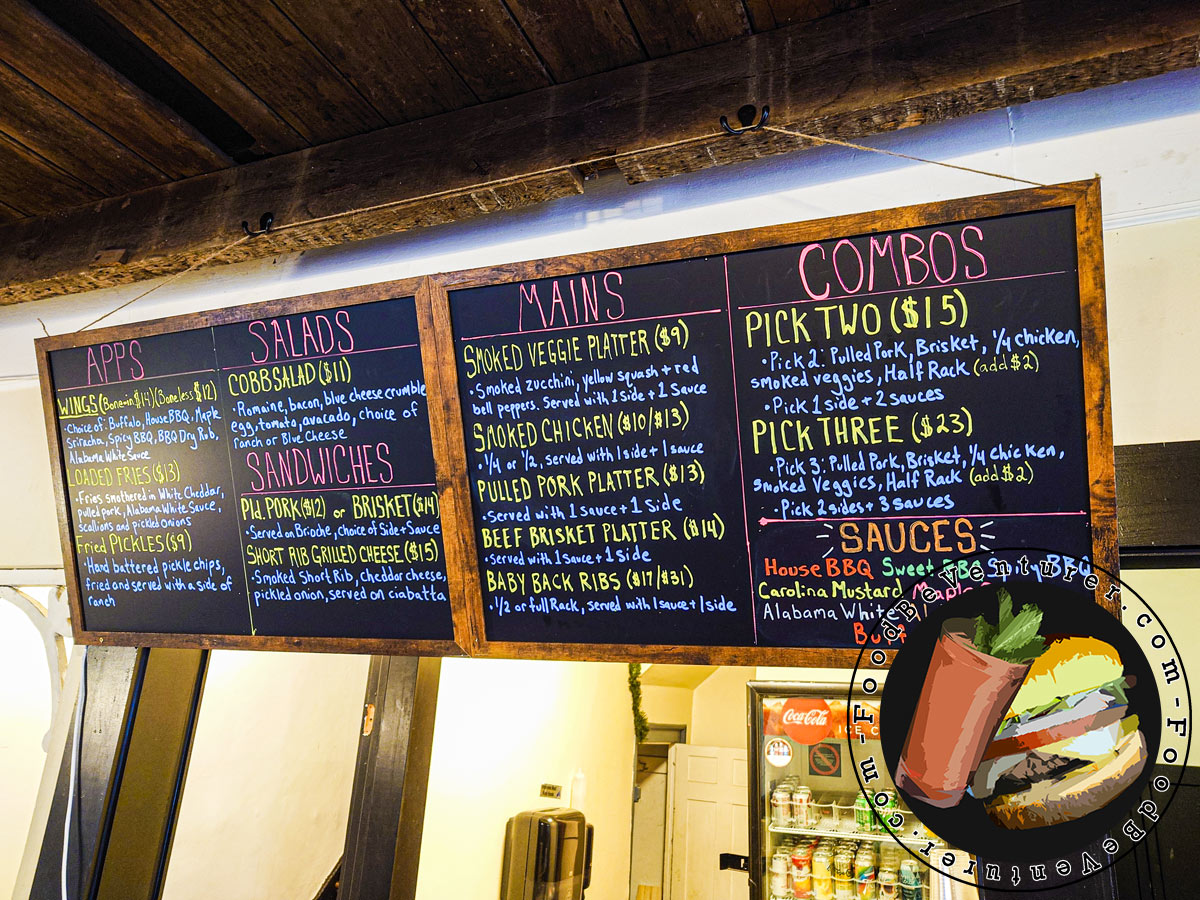 APPS
WINGS (Bone-in $14) (Boneless $12)
•Choice of: Buffalo, House BBQ, Maple
Sriracha, Spicy BBQ, BBQ Dry Rub,
Alabama White Sauce
LOADED FRIES ($13)
•Fries smothered in White Cheddar,
pulled pork, Alabama White Sauce,
scallions and pickled onions
Fried PICKLES ($9)
•Hand battered pickle chips,
fried and served with a side of
ranch
SALADS
COBB SALAD ($11)
•Romaine, bacon, blue cheese crumble
egg, tomato, avacado, choice of
ranch or Blue Cheese
SANDWICHES
Pld. PORK ($12) or BRISKET ($14)
•Served on Brioche, choice of Side + Sauce
SHORT RIB GRILLED CHEESE ($15)
•Smoked Short Rib, cheddar cheese,
pickled onion, served on ciabatta
MAINS
SMOKED VEGGIE PLATTER ($9)
•Smoked zucchini, yellow squash + red
bell peppers. Served with 1 side + 1 Sauce
SMOKED CHICKEN ($10/$13)
•1/4 or 1/2, served with 1 side + 1 sauce
PULLED PORK PLATTER ($13)
•Served with 1 sauce + 1 side
BEEF BRISKET PLATTER ($14)
•served with 1 Sauce + 1 side
BABY BACK RIBS ($17/$31)
•1/2 or full Rack, served with 1 sauce + 1 side
COMBOS
PICK TWO ($15)
•Pick 2: Pulled Pork, Brisket, 1/4 chicken,
smoked veggies, Half Rack (add $2)
•Pick 1 side + 2 sauces
PICK THREE ($23)
•Pick 3: Pulled Pork, Brisket, 1/4 chicken,
smoked Veggies, Half Rack (add $2)
•Pick 2 sides + 3 sauces
SAUCES
House BBQ Sweet BBQ Spicy BBQ
Carolina Mustard Maple
Alabama White
Coca-Cola
ICE C
FoodBeVenturer.com-FoodBeVenturer.com-